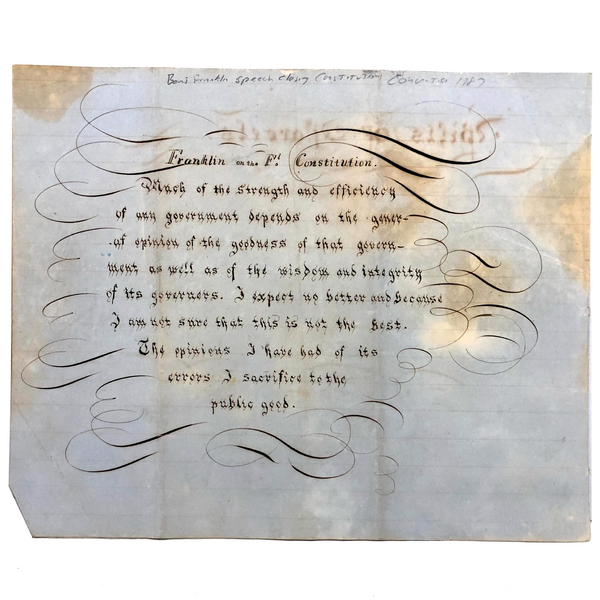 Benj Franklin speech closing Constitution Convention 1787
Franklin on the Fd. Constitution.
Much of the strength and efficiency
of any government depends on the gener-
al opinion of the goodness of that govern-
ment as well as of the wisdom and integrity
of its governers. I expect no better and because
I am not sure that this is not the best.
The opinions I have had of its
errors I sacrifice to the
public good.